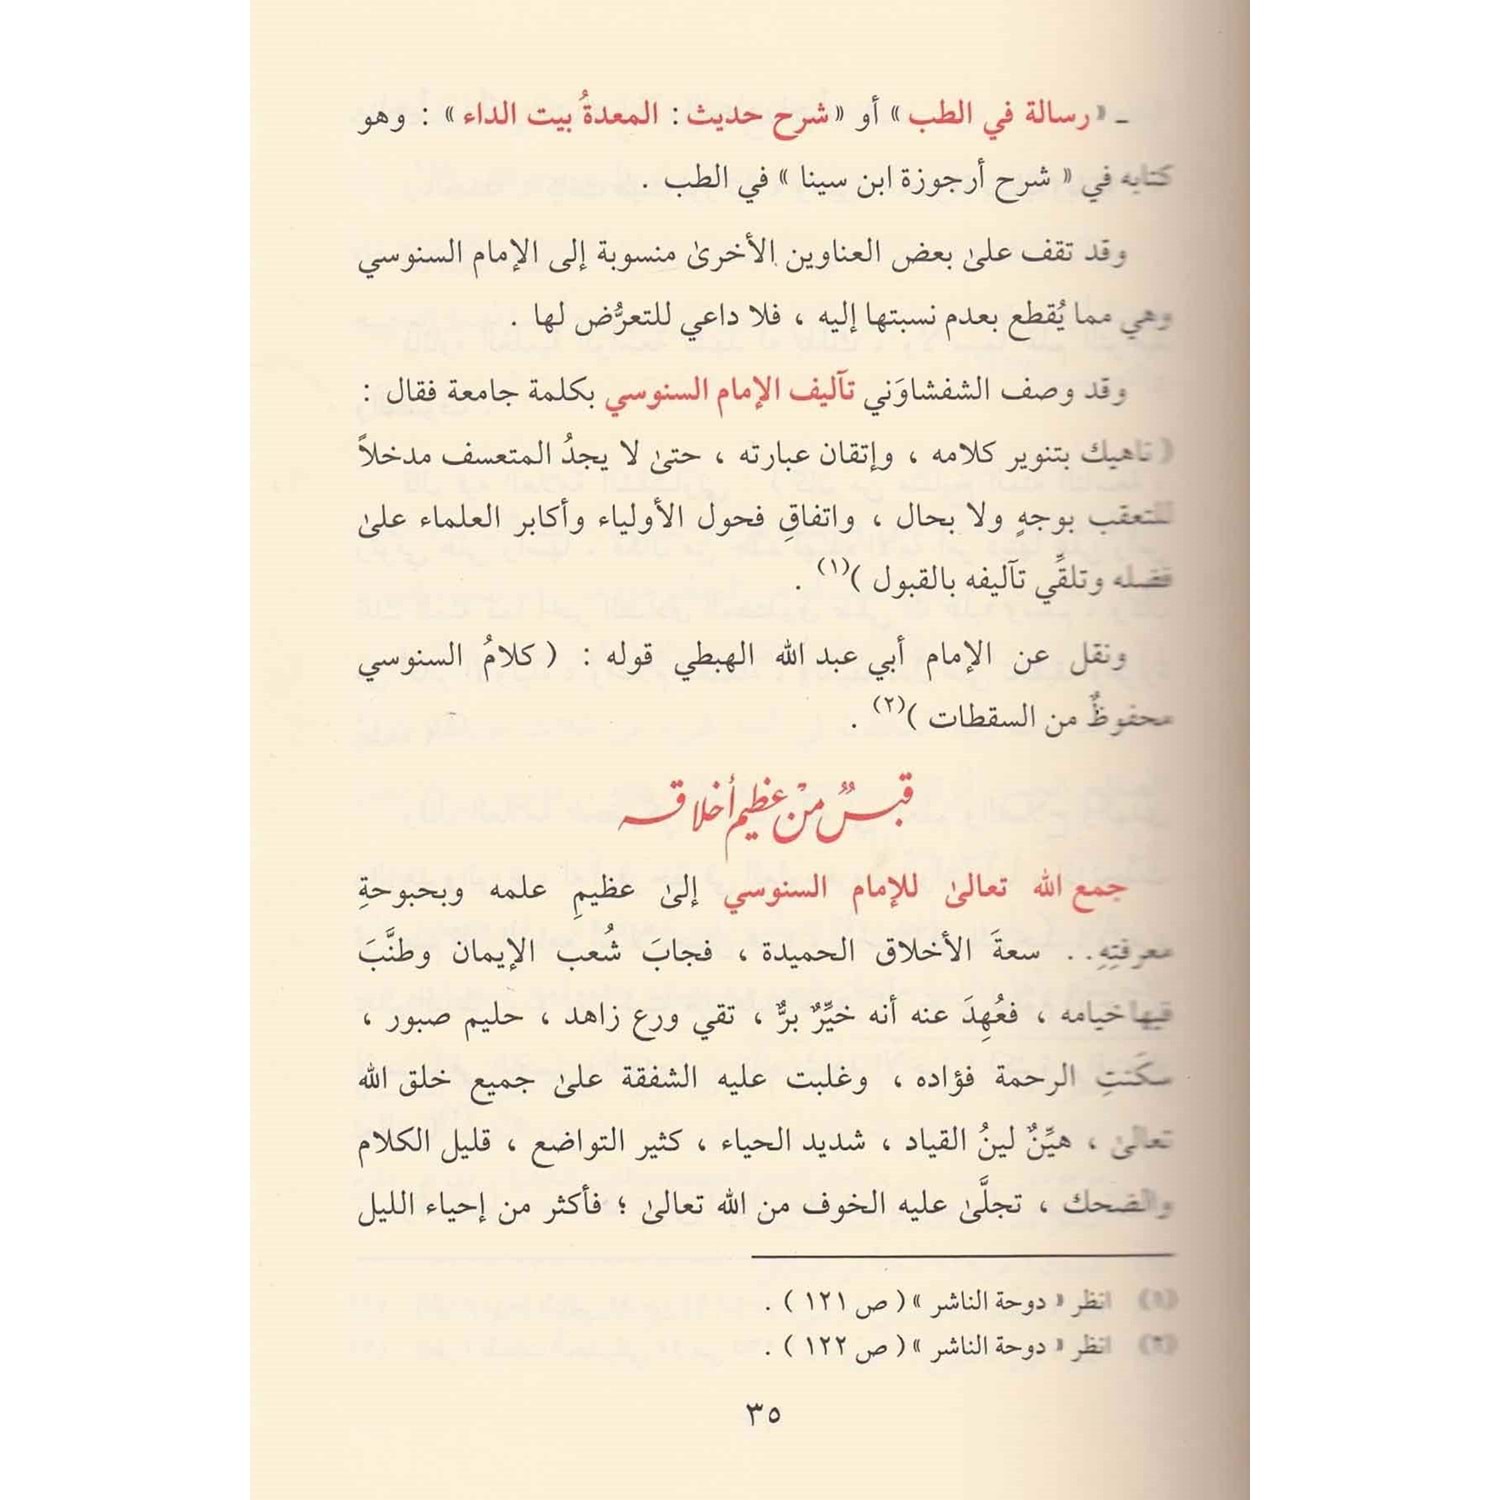 ـ « رسالة في الطب » أو « شرح حديث : المعدةُ بيت الداء » : وهو
كتابه في « شرح أرجوزة ابن سينا » في الطب .
وقد تقف علىٰ بعض العناوين الأخرىٰ منسوبة إلى الإمام السنوسي
وهي مما يُقطع بعدم نسبتها إليه ، فلا داعي للتعرُّض لها .
وقد وصف الشفشاوَني تآليف الإمام السنوسي بكلمة جامعة فقال :
( ناهيك بتنوير كلامه ، وإتقان عبارته ، حتىٰ لا يجدُ المتعسف مدخلاً
للتعقب بوجهٍ ولا بحال ، واتفاقِ فحول الأولياء وأكابر العلماء علىٰ
فضله وتلقِّي تآليفه بالقبول )(١) .
ونقل عن الإمام أبي عبد الله الهبطي قوله : ( كلامُ السنوسي
محفوظٌ من السقطات )(٢) .
قبسٌ من عظيم أخلاقه
جمع الله تعالىٰ للإمام السنوسي إلىٰ عظيمِ علمه وبحبوحةِ
معرفتِهِ . . سعةَ الأخلاق الحميدة ، فجابَ شُعب الإيمان وطنَّبَ
فيها خيامه ، فعُهِدَ عنه أنه خيِّرٌ برٌّ ، تقي ورع زاهد ، حليم صبور ،
سكَنتِ الرحمة فؤاده ، وغلبت عليه الشفقة علىٰ جميع خلق الله
تعالىٰ ، هيِّنٌ لينُ القياد ، شديد الحياء ، كثير التواضع ، قليل الكلام
والضحك ، تجلَّىٰ عليه الخوف من الله تعالىٰ ؛ فأكثر من إحياء الليل
(١) انظر « دوحة الناشر » ( ص ١٢١ ) .
(٢) انظر « دوحة الناشر » ( ص ١٢٢ ) .
٣٥